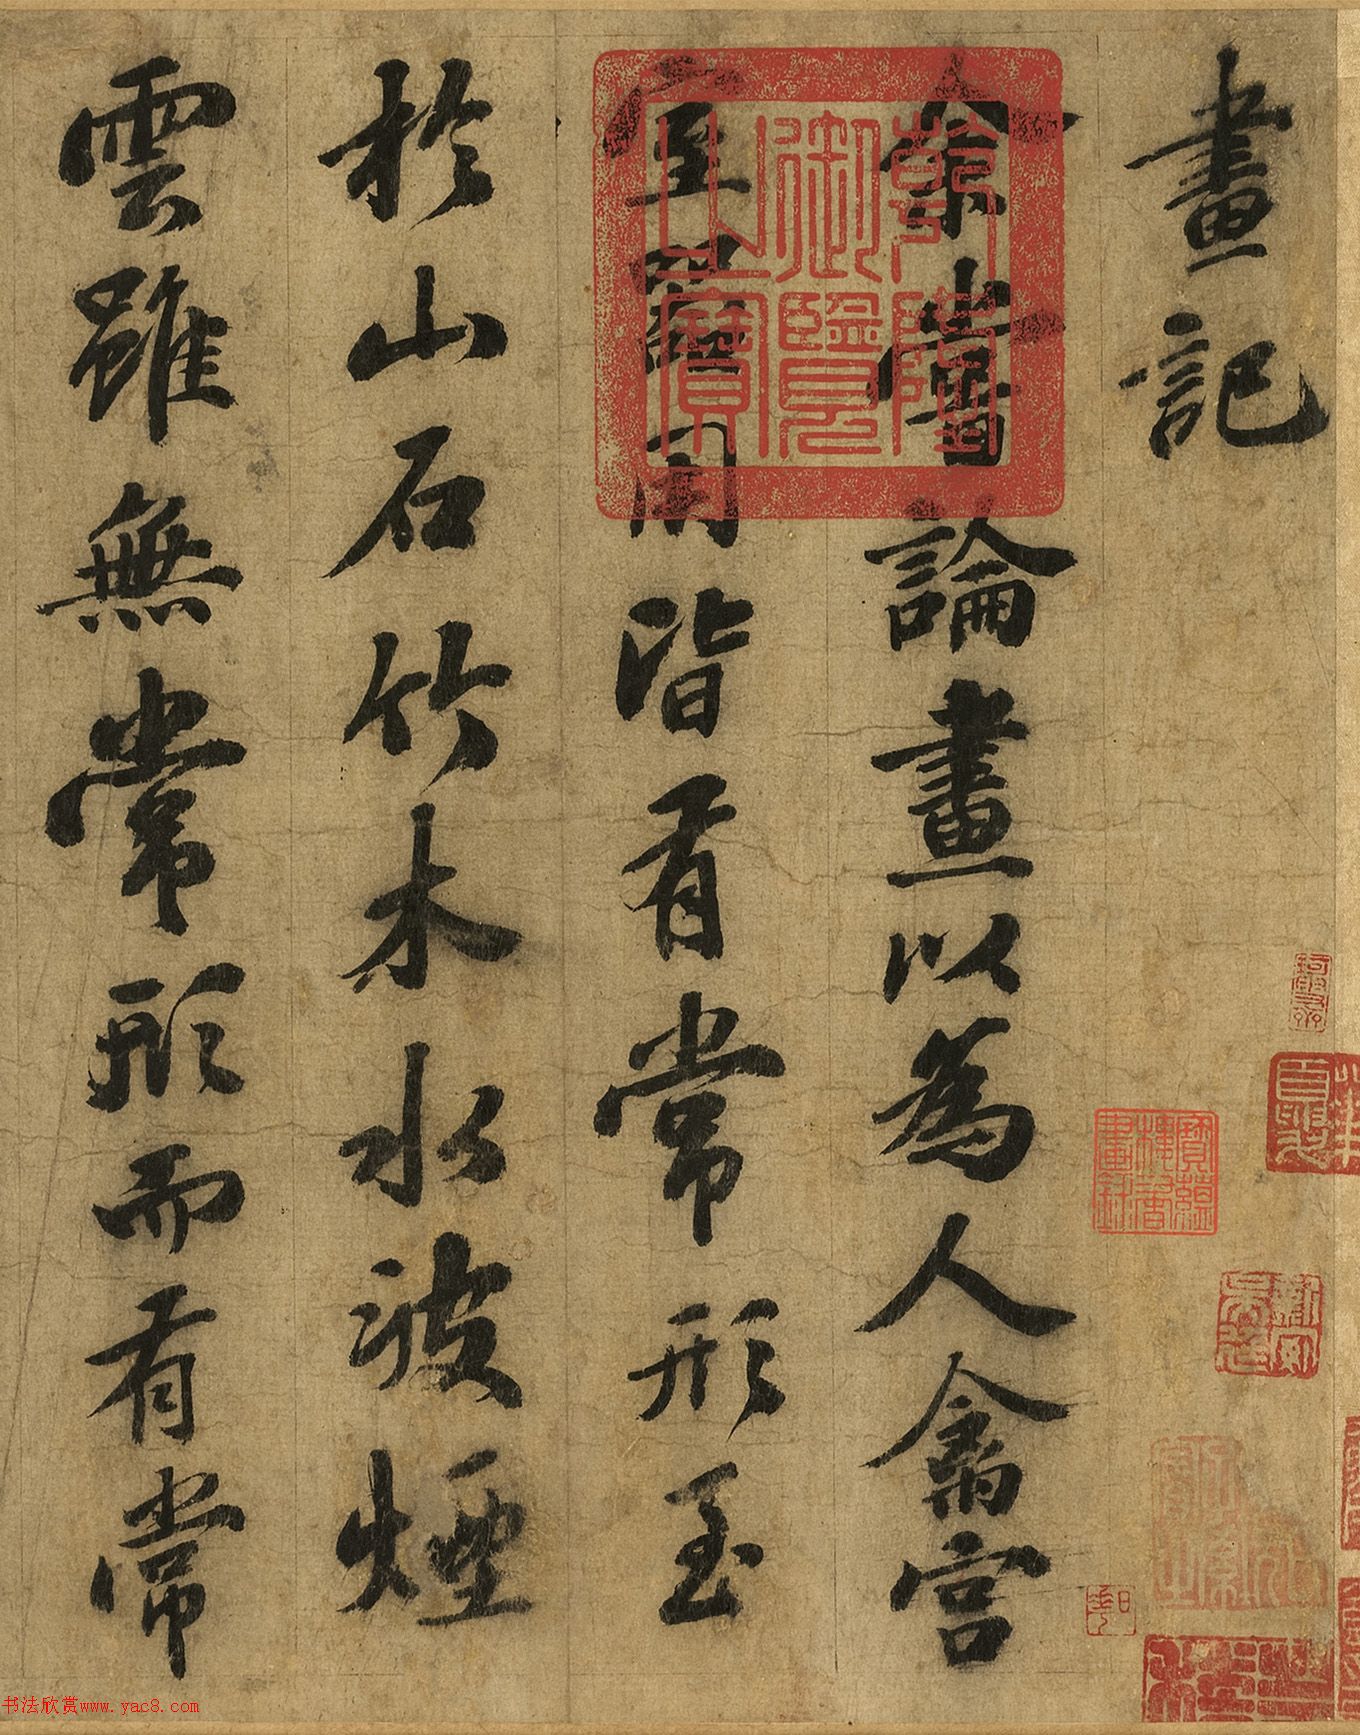 畫記
余嘗論畫以為人禽宮
室器用皆有常形至
於山石竹木水波煙
雲雖無常形而有常
乾隆
御覽
之寶
寶蘊
樓書
畫錄
书法欣赏www.yac8.com